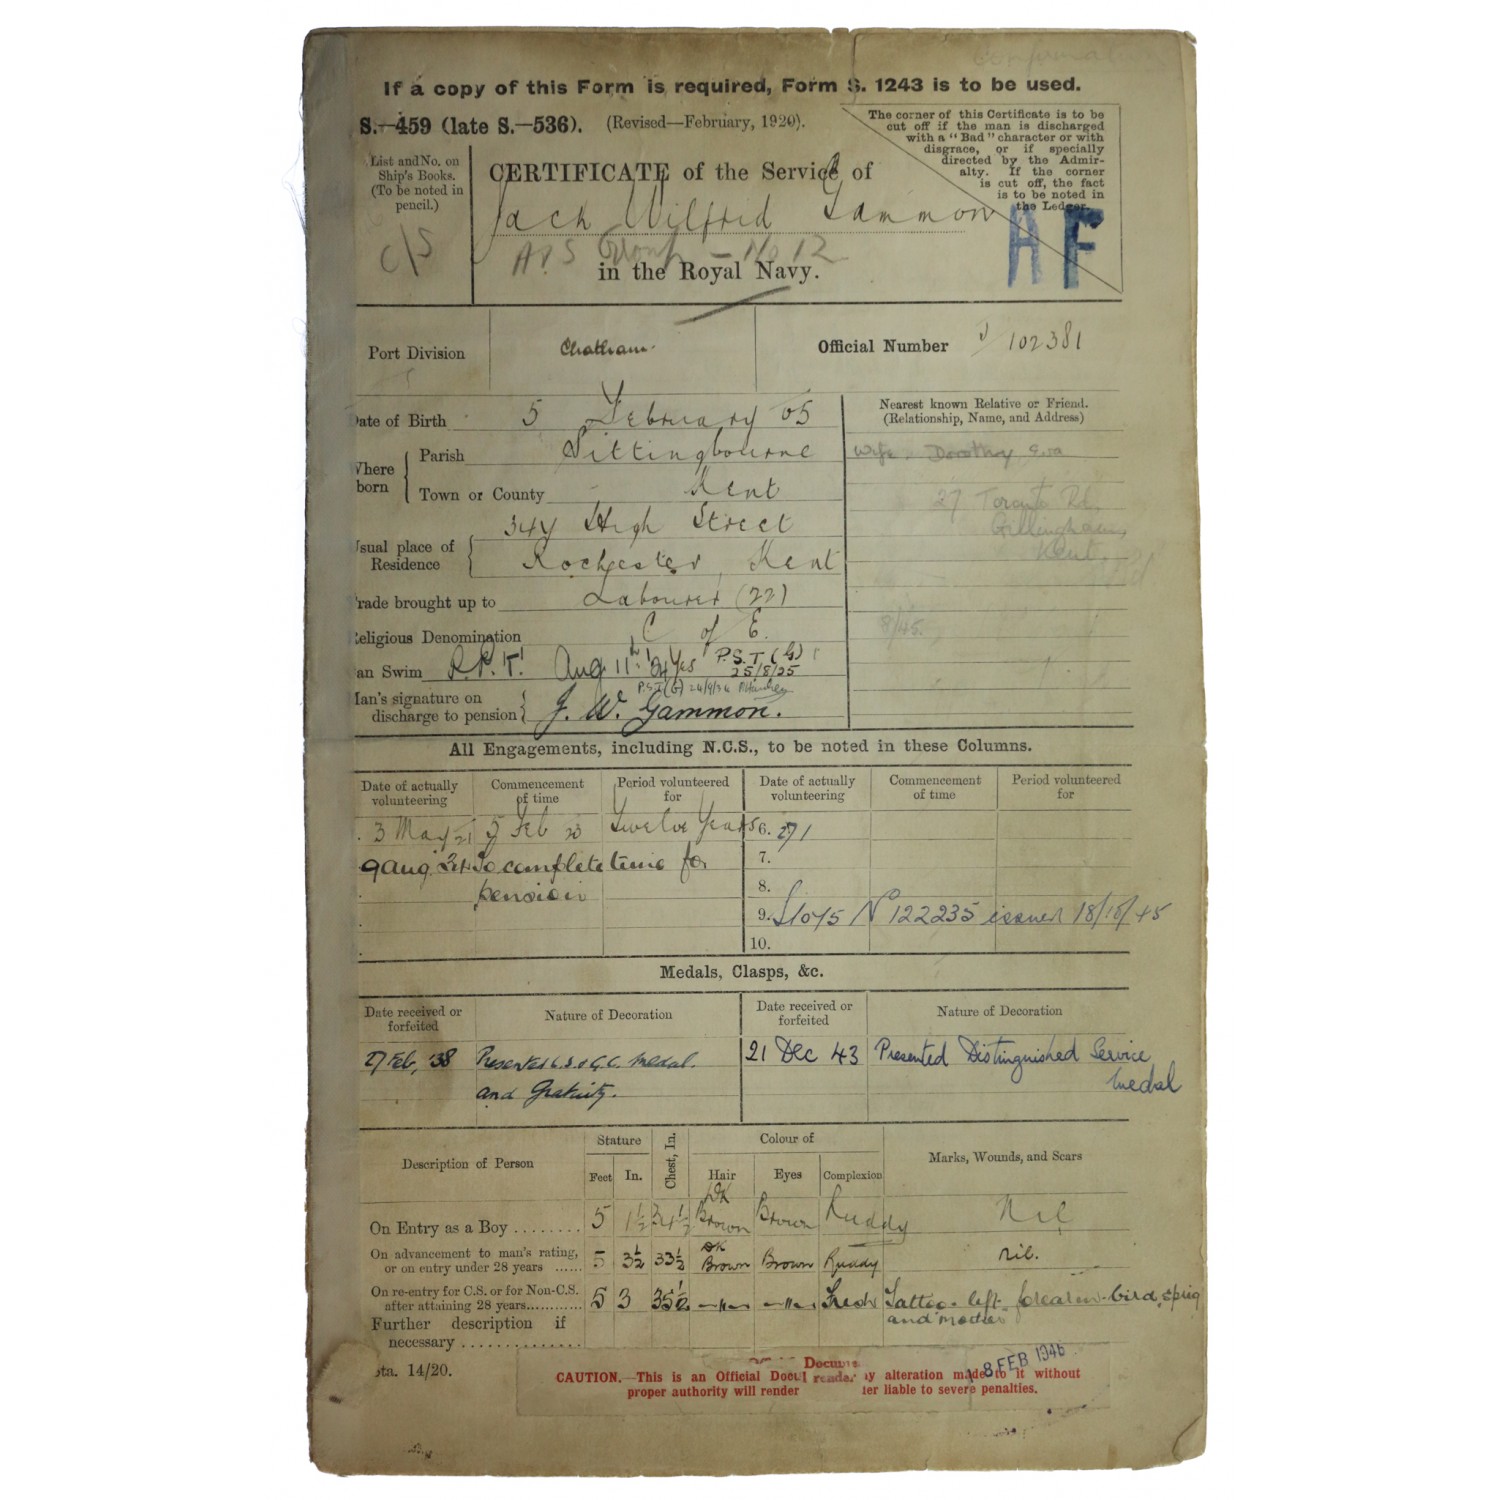 If a copy of this Form is required, Form S. 1243 is to be used.
S.—459 (late S.—536). (Revised—February, 1920).
The corner of this Certificate is to be
cut off if the man is discharged
with a "Bad" character or with
disgrace, or if specially
directed by the Admir-
alty. If the corner
is cut off, the fact
is to be noted in
the Ledger.
List and No. on
Ship's Books.
(To be noted in
pencil.)
C/S
CERTIFICATE of the Service of
Jack Wilfrid Gammon
No 12
in the Royal Navy.
AF
Port Division Chatham. Official Number J/102381
Date of Birth 5 February 05
Where born
Parish Sittingbourne
Town or County Kent
Usual place of Residence
344 High Street
Rochester, Kent
Trade brought up to Labourer (22)
Religious Denomination C of E.
Can Swim P.P.T. Aug 11th 21 Yes P.S.T (G)
25/8/25
P.S.T (G)
Man's signature on
discharge to pension J. W. Gammon.
Nearest known Relative or Friend.
(Relationship, Name, and Address)
Wife - Dorothy Eva
27 Toronto Rd.
Gillingham,
Kent.
8/45.
All Engagements, including N.C.S., to be noted in these Columns.
Date of actually volunteering Commencement of time Period volunteered for Date of actually volunteering Commencement of time Period volunteered for
3 May 21 5 Feb 23 Twelve Years 6.
9 Aug 34 To complete time for 7.
pension 8.
9. S1075 No 122235 issued 18/10/45
10.
Medals, Clasps, &c.
Date received or forfeited Nature of Decoration Date received or forfeited Nature of Decoration
27 Feb, '38 Presented L.S. & G.C. Medal. 21 Dec 43 Presented Distinguished Service
and Gratuity. Medal
Description of Person Stature Feet In. Chest, In. Colour of Hair Eyes Complexion Marks, Wounds, and Scars
On Entry as a Boy ........ 5 1½ 31½ Dk Brown Brown Ruddy Nil
On advancement to man's rating,
or on entry under 28 years ...... 5 3½ 33½ Dk Brown Brown Ruddy nil.
On re-entry for C.S. or for Non-C.S.
after attaining 28 years............ 5 3 35½ —"— —"— Fresh Tattoo - left forearm - bird,
and mother
Further description if
necessary ..............
Sta. 14/20.
CAUTION.—This is an Official Docu y alteration made to it without
proper authority will render ler liable to severe penalties.
8 FEB 1946